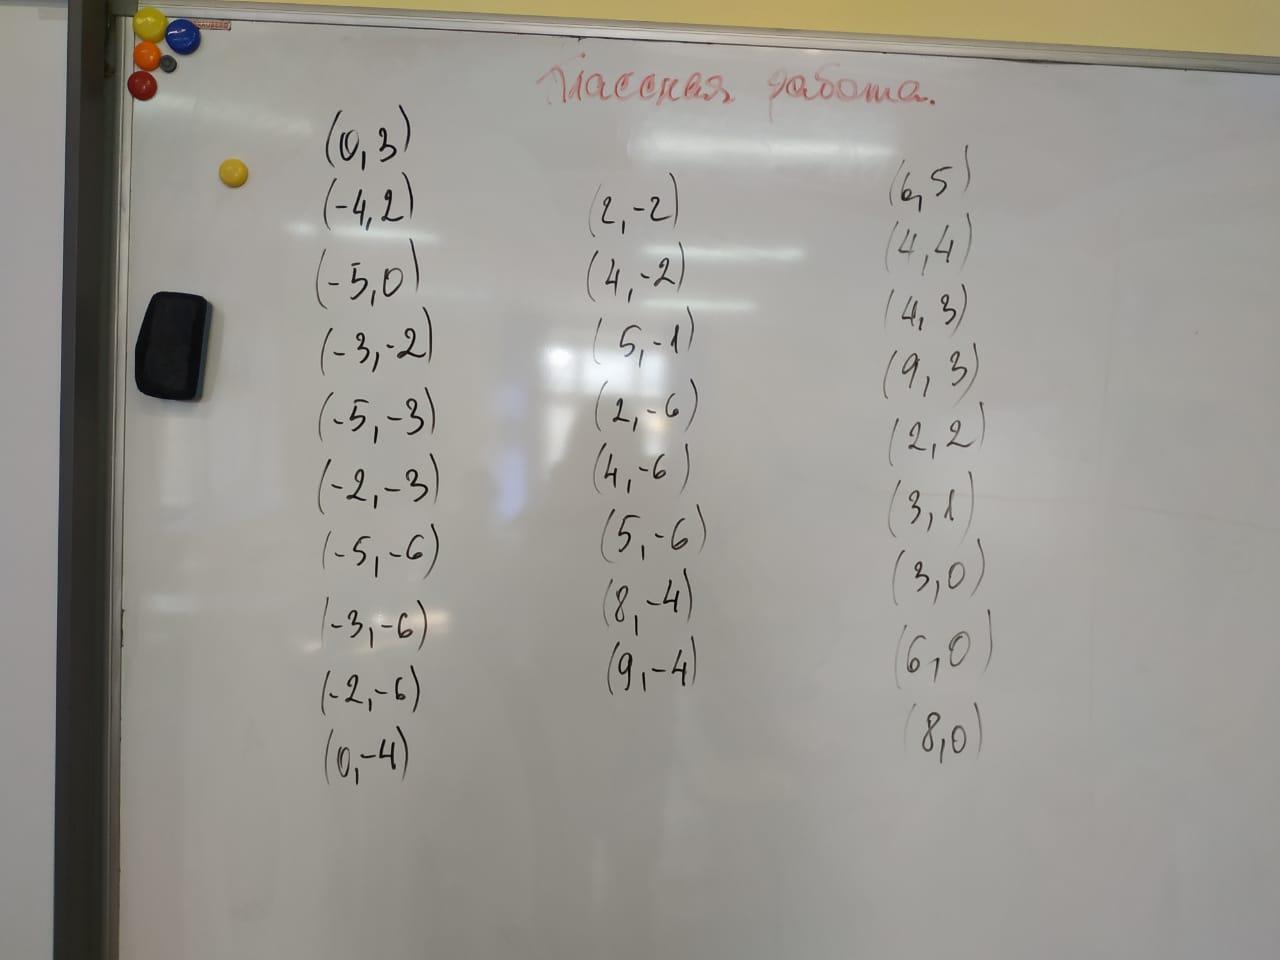 Классная работа.
(0, 3)
(-4, 2)
(-5, 0)
(-3, -2)
(-5, -3)
(-2, -3)
(-5, -6)
(-3, -6)
(-2, -6)
(0, -4)
(2, -2)
(4, -2)
(5, -1)
(2, -6)
(4, -6)
(5, -6)
(8, -4)
(9, -4)
(6, 5)
(4, 4)
(4, 3)
(9, 3)
(2, 2)
(3, 1)
(3, 0)
(6, 0)
(8, 0)